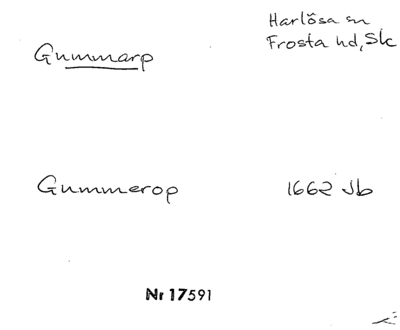 Harlösa sn
Gummarp
Frosta hd, Sk
Gummerop
1662 Jb
Nr 17591